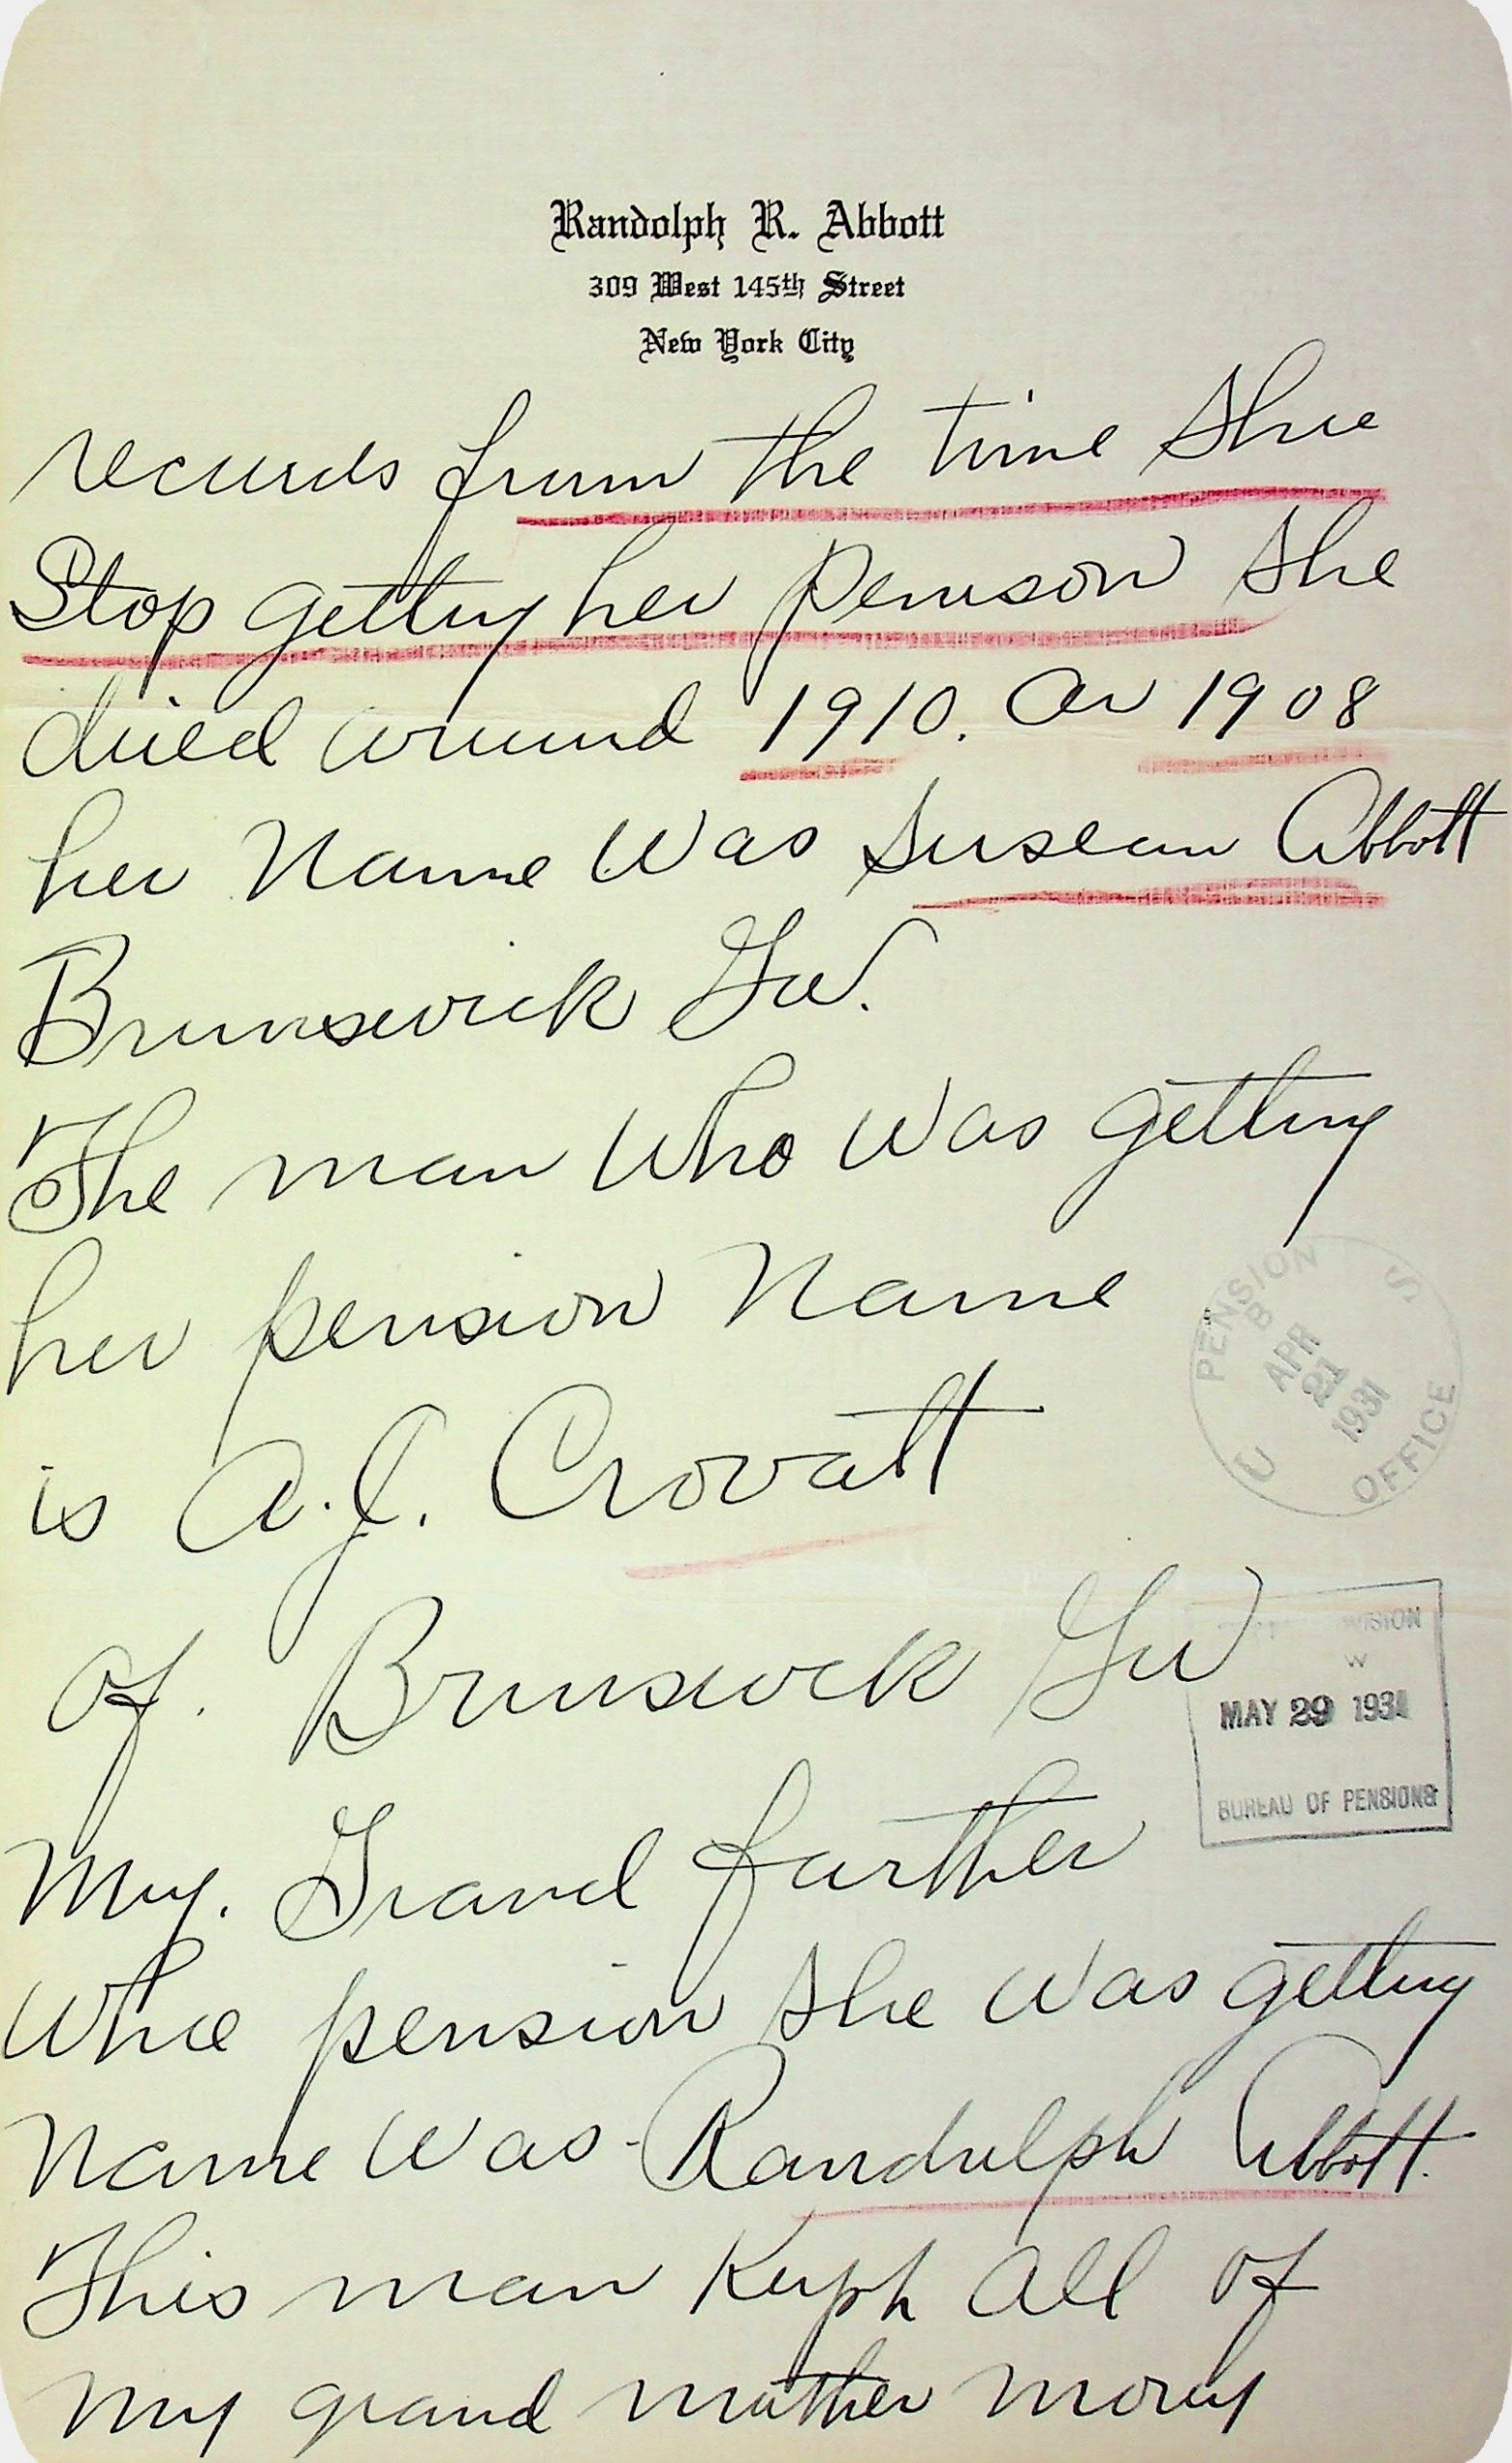 Randolph R. Abbott
309 West 145th Street
New York City
records from the time shee
Stop getting her penison she
died around 1910. Or 1908
her Name Was Susean Abbott
Brunswick Ga.
The man Who Was getting
her pension Name
is A.J. Crovatt
of. Brunswick Ga
My. Grand farther
Who pension she was getting
Name Was-Randolph Abbott.
This man Keph all of
My grand mother money
PENSION
U S
OFFICE
B
APR
21
1931
VISION
W
MAY 29 1931
BUREAU OF PENSIONS